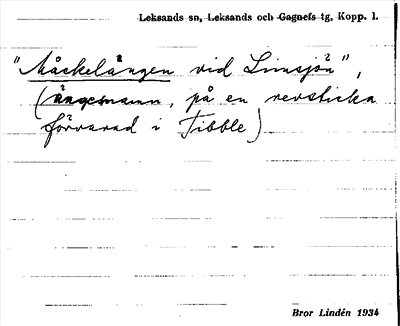 Leksands sn, Leksands och Gagnefs tg, Kopp. l.
"Måskelången vid Limsjön",
(ängesnamn, på en revsticka
förvarad i Tibble)
Bror Lindén 1934